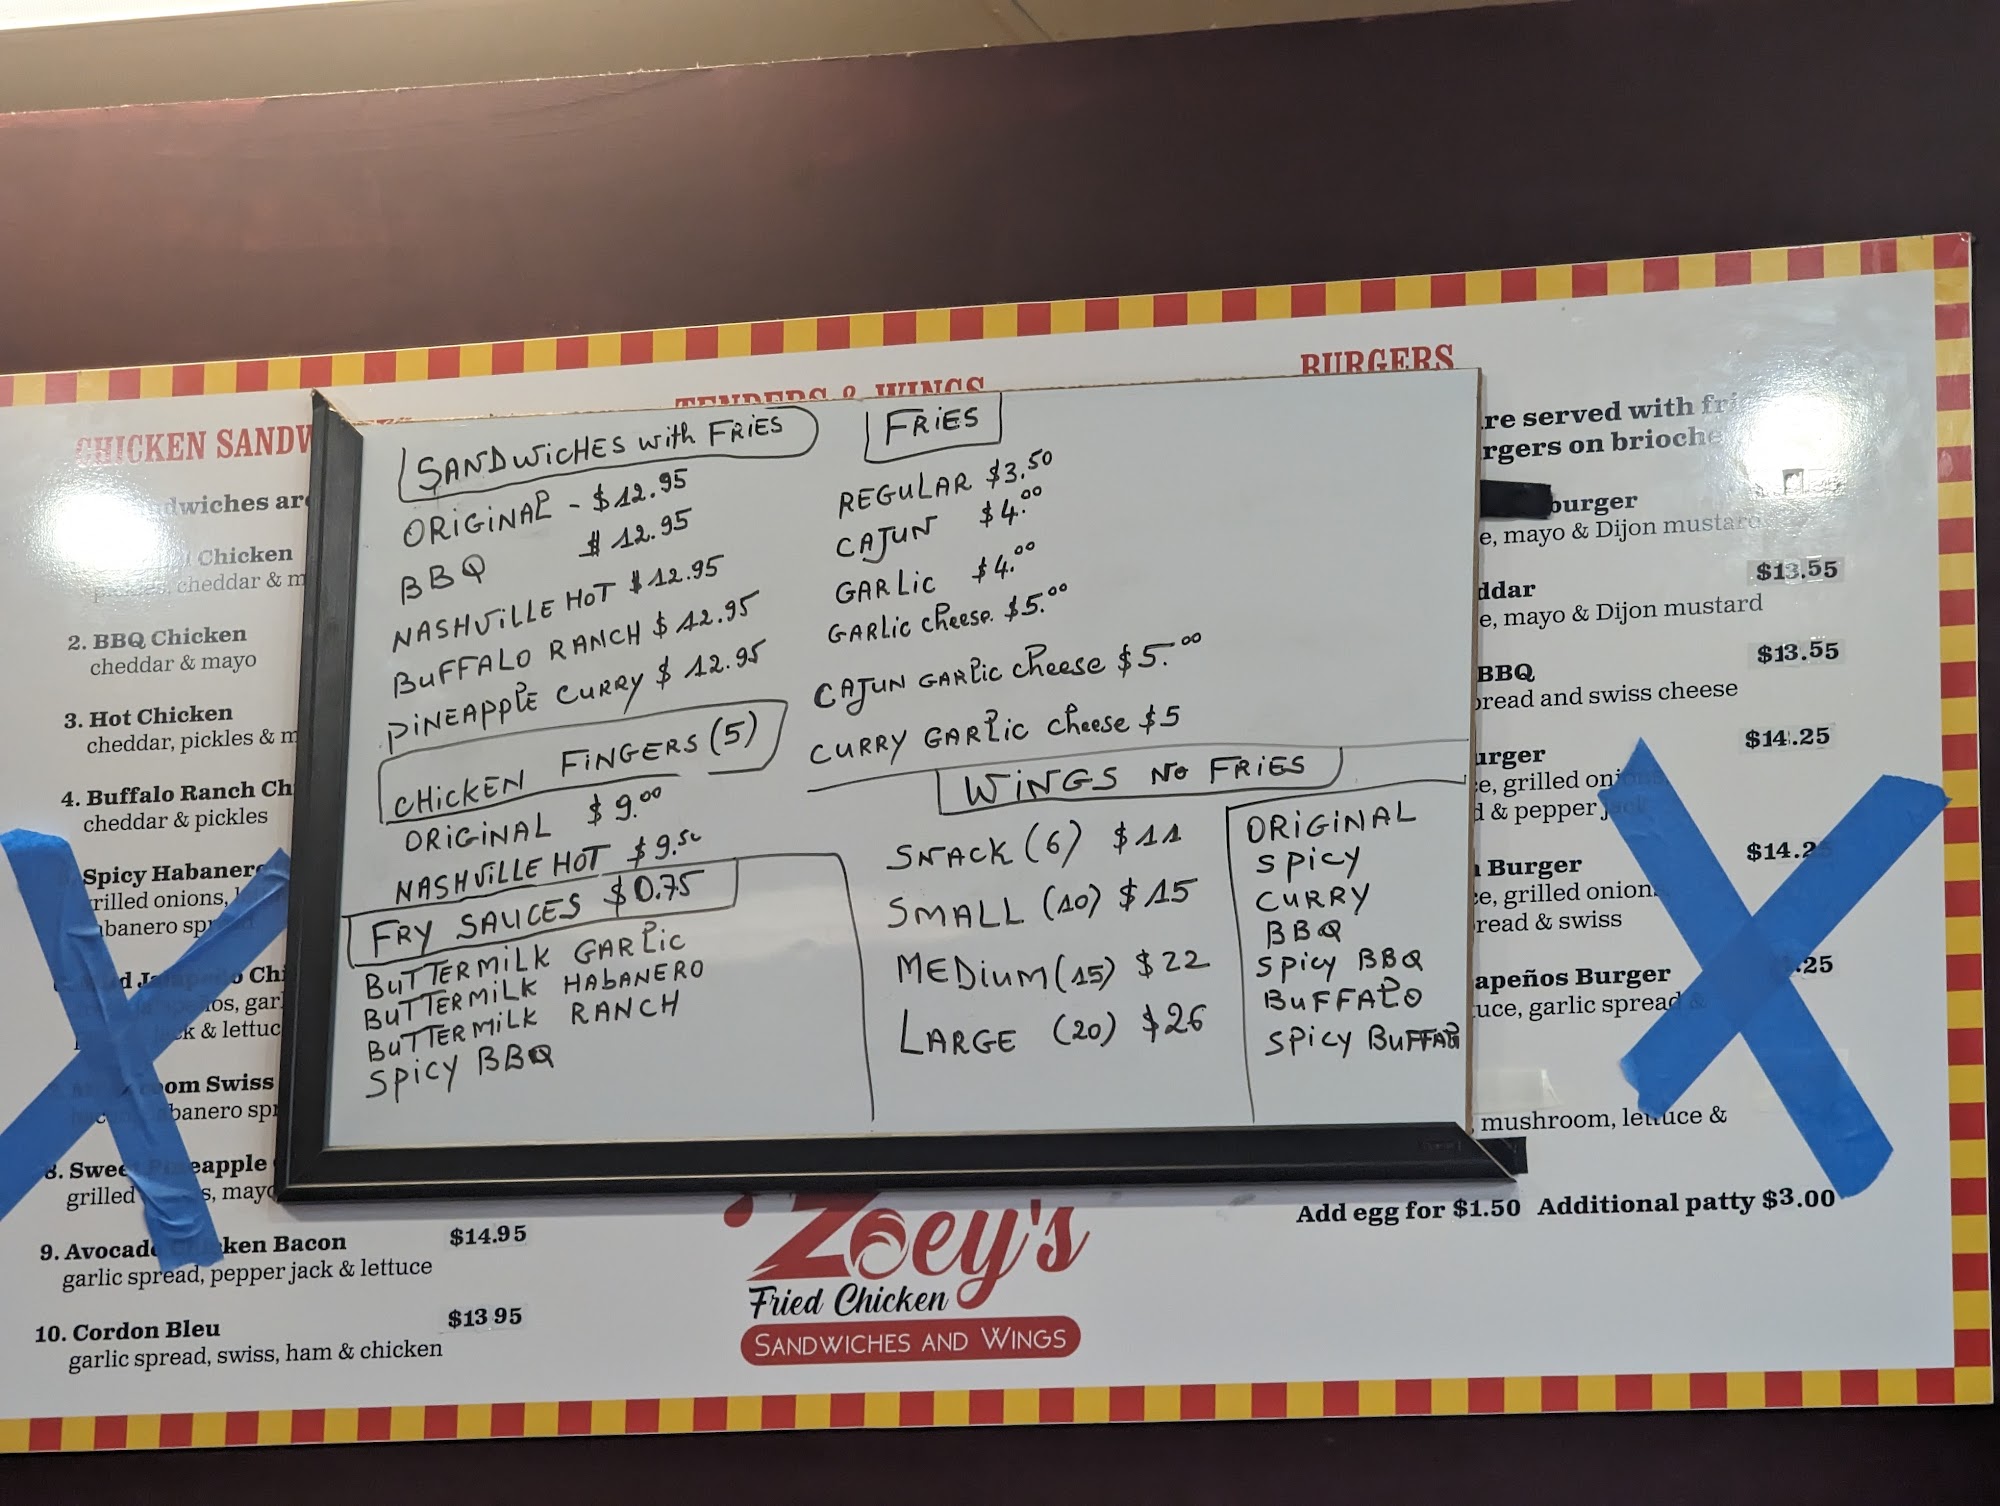 CHICKEN SANDW
dwiches are
Chicken
cheddar & m
2. BBQ Chicken
cheddar & mayo
3. Hot Chicken
cheddar, pickles & m
4. Buffalo Ranch Ch
cheddar & pickles
Spicy Habanero
rilled onions,
banero sp
Chi
os, gar
k & lettuc
oom Swiss
banero spr
8. Sweet Pineapple
grilled s, mayo
9. Avocado Chicken Bacon $14.95
garlic spread, pepper jack & lettuce
10. Cordon Bleu $13 95
garlic spread, swiss, ham & chicken
TENDERS & WINGS
SANDWiCHES with FRiES
ORiGiNAL - $12.95
BBQ $12.95
NASHViLLE HOT $12.95
BUFFALO RANCH $12.95
PiNEAPPLE CURRY $12.95
CHiCKEN FiNGERS (5)
ORiGiNAL $9.00
NASHViLLE HOT $9.50
FRY SAUCES $0.75
BUTTERMiLK GARLiC
BUTTERMiLK HABANERO
BUTTERMiLK RANCH
SPiCY BBQ
FRiES
REGULAR $3.50
CAJUN $4.00
GARLiC $4.00
GARLiC cheese. $5.00
CAJUN GARLiC cheese $5.00
CURRY GARLiC cheese $5
WiNGS No FRiES
SNACK (6) $11
SMALL (10) $15
MEDiUM (15) $22
LARGE (20) $26
ORiGiNAL
SPiCY
CURRY
BBQ
SPiCY BBQ
BUFFALO
SPiCY BUFFALO
BURGERS
re served with fri
rgers on brioche
burger
e, mayo & Dijon mustard
ddar $13.55
e, mayo & Dijon mustard
BBQ $13.55
pread and swiss cheese
urger $14.25
e, grilled onions,
d & pepper jack
Burger $14.25
e, grilled onion
read & swiss
apeños Burger .25
uce, garlic spread &
, mushroom, lettuce &
Add egg for $1.50 Additional patty $3.00
Zoey's
Fried Chicken
SANDWICHES AND WINGS